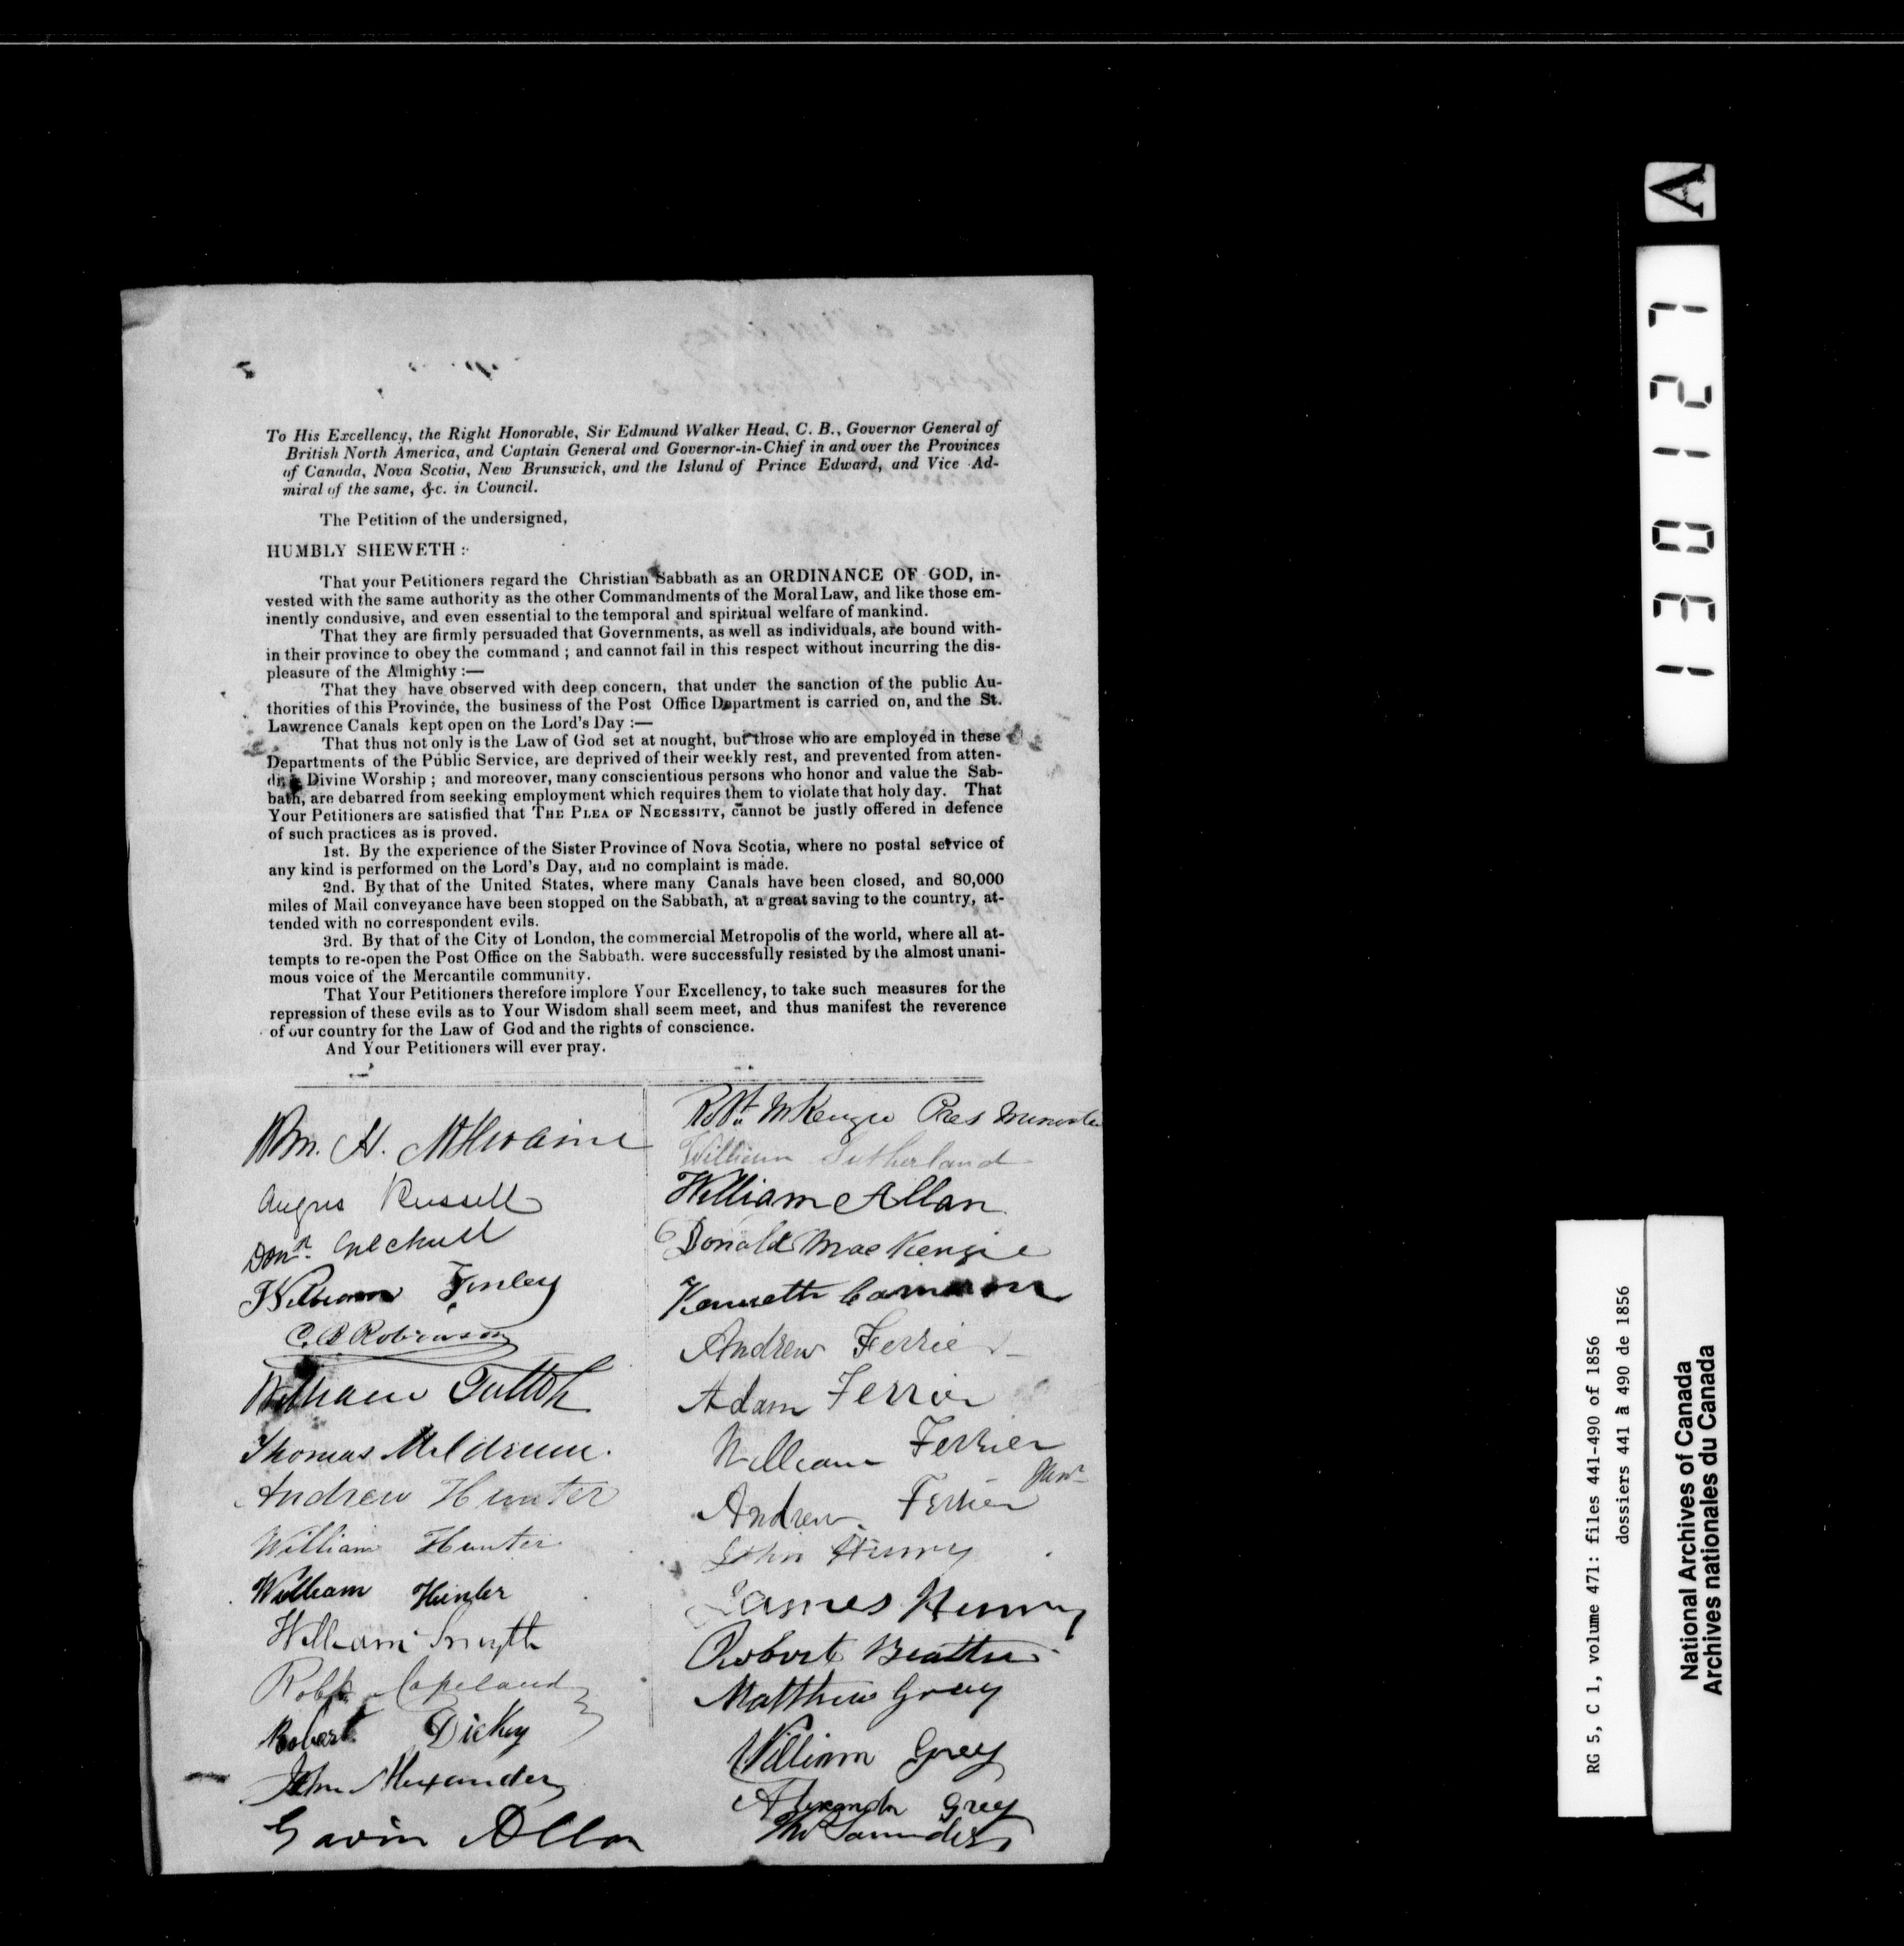 To His Excellency, the Right Honorable, Sir Edmund Walker Head, C. B., Governor General of
British North America, and Captain General and Governor-in-Chief in and over the Provinces
of Canada, Nova Scotia, New Brunswick, and the Island of Prince Edward, and Vice Ad-
miral of the same, &c. in Council.
The Petition of the undersigned,
HUMBLY SHEWETH :
That your Petitioners regard the Christian Sabbath as an ORDINANCE OF GOD, in-
vested with the same authority as the other Commandments of the Moral Law, and like those em-
inently condusive, and even essential to the temporal and spiritual welfare of mankind.
That they are firmly persuaded that Governments, as well as individuals, are bound with-
in their province to obey the command ; and cannot fail in this respect without incurring the dis-
pleasure of the Almighty :—
That they have observed with deep concern, that under the sanction of the public Au-
thorities of this Province, the business of the Post Office Department is carried on, and the St.
Lawrence Canals kept open on the Lord's Day :—
That thus not only is the Law of God set at nought, but those who are employed in these
Departments of the Public Service, are deprived of their weekly rest, and prevented from atten-
ding Divine Worship ; and moreover, many conscientious persons who honor and value the Sab-
bath, are debarred from seeking employment which requires them to violate that holy day. That
Your Petitioners are satisfied that THE PLEA OF NECESSITY, cannot be justly offered in defence
of such practices as is proved.
1st. By the experience of the Sister Province of Nova Scotia, where no postal service of
any kind is performed on the Lord's Day, and no complaint is made.
2nd. By that of the United States, where many Canals have been closed, and 80,000
miles of Mail conveyance have been stopped on the Sabbath, at a great saving to the country, at-
tended with no correspondent evils.
3rd. By that of the City of London, the commercial Metropolis of the world, where all at-
tempts to re-open the Post Office on the Sabbath. were successfully resisted by the almost unani-
mous voice of the Mercantile community.
That Your Petitioners therefore implore Your Excellency, to take such measures for the
repression of these evils as to Your Wisdom shall seem meet, and thus manifest the reverence
of our country for the Law of God and the rights of conscience.
And Your Petitioners will ever pray.
Wm. H. McIlwaine
Angus Russell
William Finley
C. B. Robinson
William Tuttoh
Thomas Meldrum.
Andrew Hunter
William Hunter
William Hunter
William Smyth
Robt Copeland
Robert Dickey
John Alexander
Gavin Allan
Robt. McKenzie Pres Minister
William Sutherland
William Allan
Donald MacKenzie
Kenneth Cameron
Andrew Ferrier
Adam Ferrier
William Ferrier
Andrew Ferrier Junr
John Henry
James Henry
Robert Beattie
Matthew Gray
William Grey
Alexander Grey
Thos Saunders
A
130127
RG 5, C 1, volume 471: files 441-490 of 1856
dossiers 441 à 490 de 1856
National Archives of Canada
Archives nationales du Canada